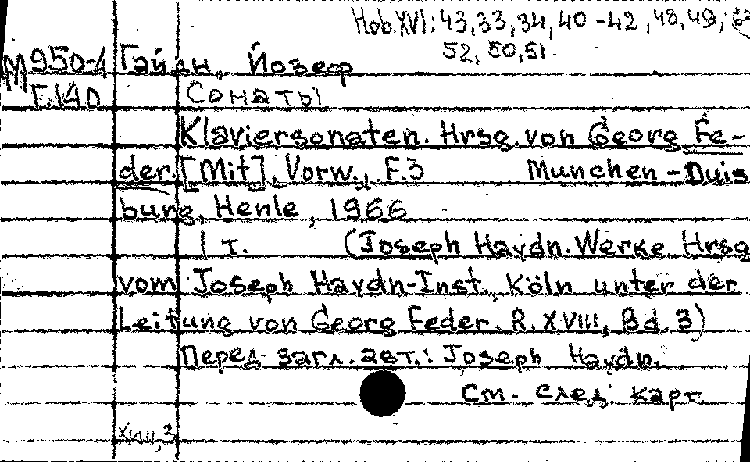 Hob. XVI: 43, 33, 34, 40-42, 48, 49,
52, 50, 51
M950-4 Гайдн, Йозеф
Г.140 Сонаты
Klaviersonaten. Hrsg. von Georg Fe-
der. [Mit], Vorw., F.3 Munchen-Duis
burg, Henle, 1966
1 т. (Joseph Haydn. Werke. Hrsg
vom Joseph Haydn-Inst., Köln unter der
Leitung von Georg Feder. R. XVIII, Bd. 3)
Перед загл. авт.: Joseph Haydn.
См. след. карт.